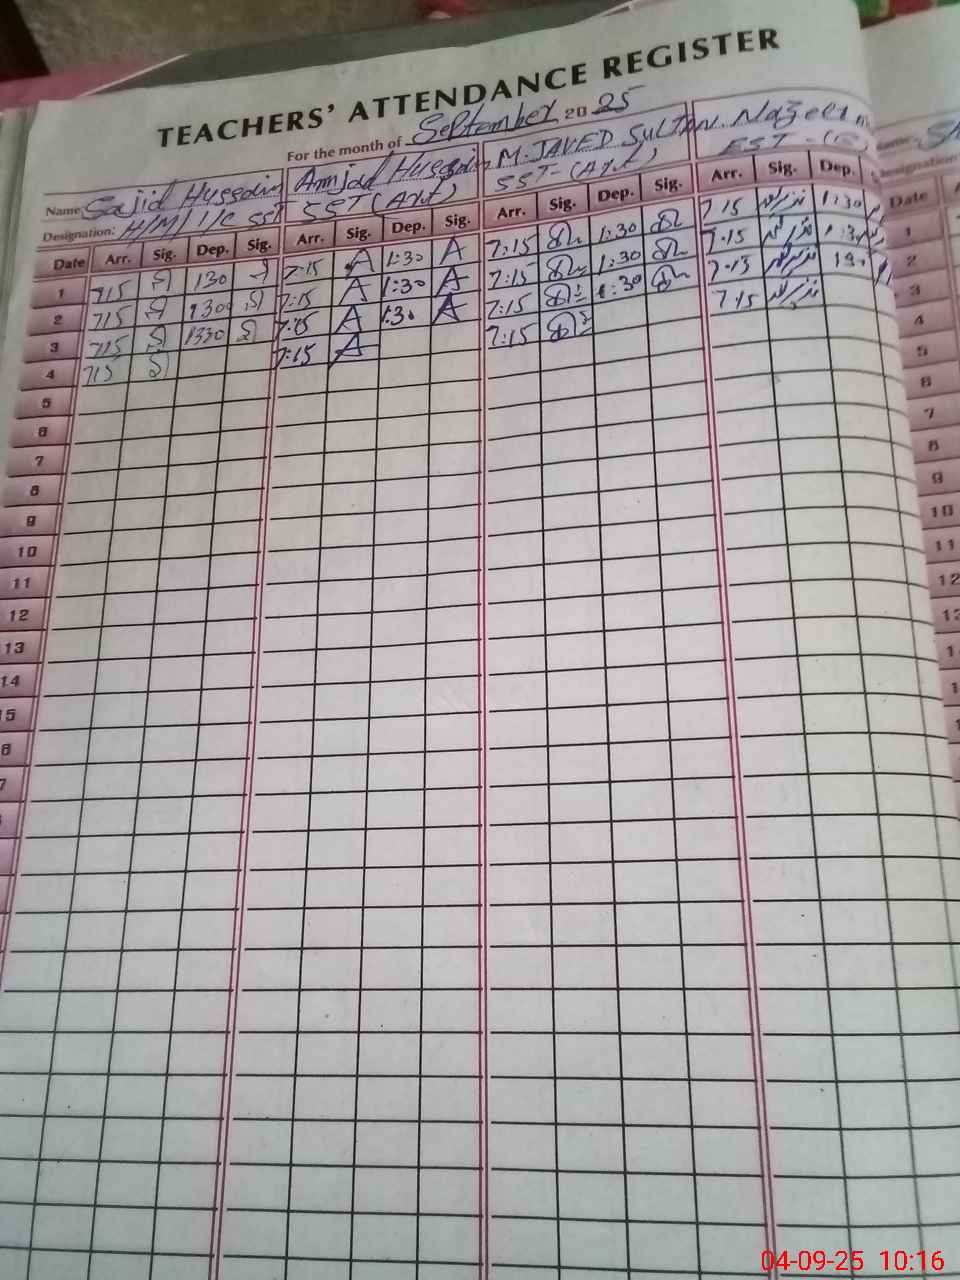 TEACHERS' ATTENDANCE REGISTER
For the month of September 2025
Name Sajid Hussain Amjad Hussain M. JAVED SULTAN. Nazeer
Designation: H/M I/C SST SST (Art) SST-(Art) EST
Date Arr. Sig. Dep. Sig. Arr. Sig. Dep. Sig. Arr. Sig. Dep. Sig. Arr. Sig. Dep.
1 715 130 7:15 A 1:30 A 7:15 1:30 7 15 1:30
2 715 130 7:15 A 1:30 A 7:15 1:30 7.15
3 715 1330 7:15 A 1:30 A 7:15 1:30 7.15 130
4 715 7:15 A 7:15 7:15
5
6
7
8
9
10
11
12
13
14
15
6
7
Name: S
Designation
Date
1
2
3
4
5
6
7
8
9
10
11
12
04-09-25 10:16